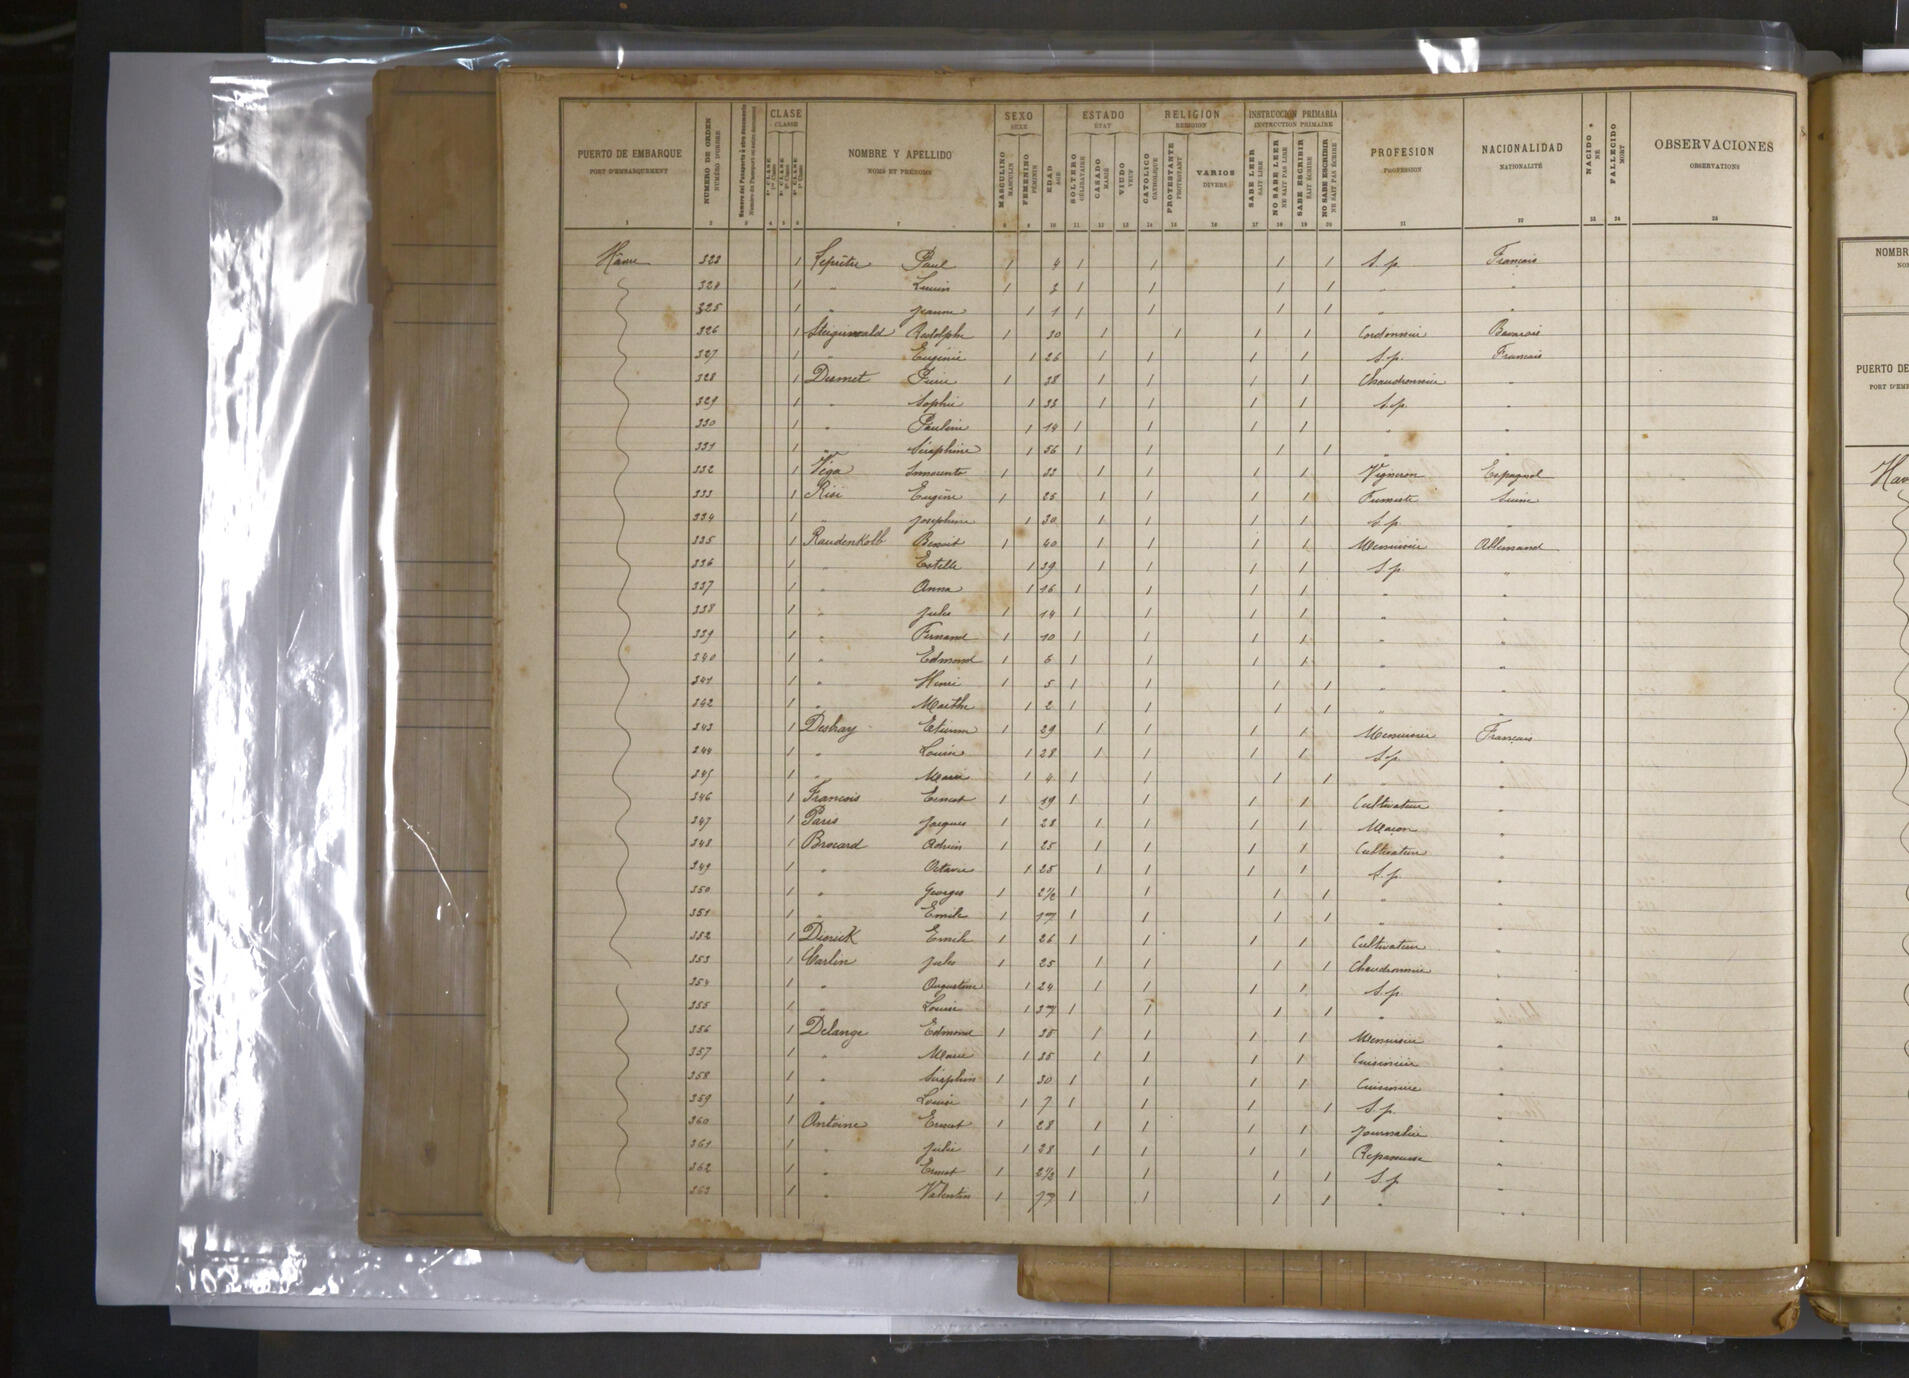 PUERTO DE EMBARQUE NUMERO DE ORDEN Numero del Pasaporte ó otro documento CLASE NOMBRE Y APELLIDO SEXO EDAD ESTADO RELIGION INSTRUCCIÓN PRIMARIA PROFESION NACIONALIDAD NACIDO FALLECIDO OBSERVACIONES
PORT D'EMBARQUEMENT NUMÉRO D'ORDRE CLASSE NOMS ET PRÉNOMS SEXE AGE ÉTAT RELIGION INSTRUCTION PRIMAIRE PROFESSION NATIONALITÉ NÉ MORT OBSERVATIONS
1ª CLASE 2ª CLASE 3ª CLASE MASCULINO FEMENINO SOLTERO CASADO VIUDO CATOLICO PROTESTANTE VARIOS SABE LEER NO SABE LEER SABE ESCRIBIR NO SABE ESCRIBIR
1re Classe 2e Classe 3e Classe MASCULIN FÉMININ CÉLIBATAIRE MARIÉ VEUF CATHOLIQUE PROTESTANT DIVERS SAIT LIRE NE SAIT PAS LIRE SAIT ÉCRIRE NE SAIT PAS ÉCRIRE
1 2 3 4 5 6 7 8 9 10 11 12 13 14 15 16 17 18 19 20 21 22 23 24 25
Hâvre 323 1 Leprêtre Paul 1 4 1 1 1 1 S.p. Français
324 1 " 1 1 1 1 1 " "
325 1 " Jeanne 1 1 1 1 1 1 " "
326 1 Steigerwald Rodolphe 1 30 1 1 1 1 Cordonnier Bavarois
327 1 " Eugénie 1 26 1 1 1 1 S.p. Français
328 1 Desmet Pierre 1 38 1 1 1 1 Chaudronnier "
329 1 " Sophie 1 33 1 1 1 1 S.p. "
330 1 " Pauline 1 14 1 1 1 1 " "
331 1 " Séraphine 1 56 1 1 1 1 " "
332 1 Vega Innocento 1 33 1 1 1 1 Vigneron Espagnol
333 1 Risi Eugène 1 25 1 1 1 1 Fumiste Suisse
334 1 " Joséphine 1 30 1 1 1 1 S.p. "
335 1 Raudenkolb Benoit 1 40 1 1 1 1 Menuisier Allemand
336 1 " Estelle 1 39 1 1 1 1 S.p. "
337 1 " Anna 1 16 1 1 1 1 " "
338 1 " Jules 1 14 1 1 1 1 " "
339 1 " Fernand 1 10 1 1 1 1 " "
340 1 " Edmond 1 6 1 1 1 1 " "
341 1 " Henri 1 5 1 1 1 1 " "
342 1 " Marthe 1 2 1 1 1 1 " "
343 1 Desbray Etienne 1 29 1 1 1 1 Menuisier Français
344 1 " Louise 1 28 1 1 1 1 S.p. "
345 1 " Marie 1 4 1 1 1 1 " "
346 1 François Ernest 1 19 1 1 1 1 Cultivateur "
347 1 Paris Jacques 1 28 1 1 1 1 Maçon "
348 1 Brocard Adrien 1 25 1 1 1 1 Cultivateur "
349 1 " Octavie 1 25 1 1 1 1 S.p. "
350 1 " Georges 1 2½ 1 1 1 1 " "
351 1 " Emile 1 1 1 1 1 " "
352 1 Dierick Emile 1 26 1 1 1 1 Cultivateur "
353 1 Carlin Jules 1 25 1 1 1 1 Chaudronnier "
354 1 " Augustine 1 24 1 1 1 1 S.p. "
355 1 " Louise 1 1 1 1 1 " "
356 1 Delange Edmond 1 38 1 1 1 1 Menuisier "
357 1 " Marie 1 35 1 1 1 1 Cuisinière "
358 1 " Séraphin 1 30 1 1 1 1 "
359 1 " Louise 1 7 1 1 1 1 S.p. "
360 1 Antoine Ernest 1 28 1 1 1 1 Journalier "
361 1 " Julie 1 28 1 1 1 1 Repasseuse "
362 1 " Ernest 1 2½ 1 1 1 1 S.p. "
363 1 " Valentin 1 1 1 1 1 " "
NOMBR
PUERTO DE
PORT D'EMB
Hav